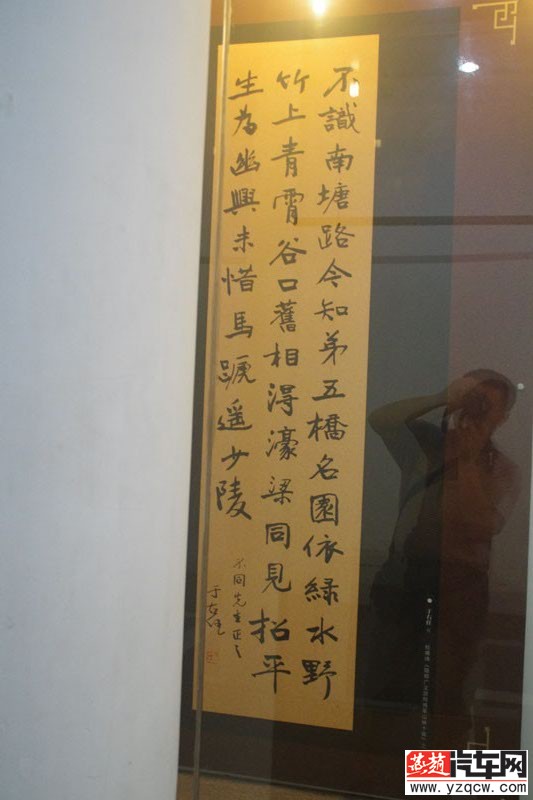 不識南塘路今知第五橋名園依綠水野
竹上青霄谷口舊相得濠梁同見招平
生為幽興未惜馬蹄遥少陵
不同先生正之
于右任
于右任
燕趙汽车网
www.yzqcw.com